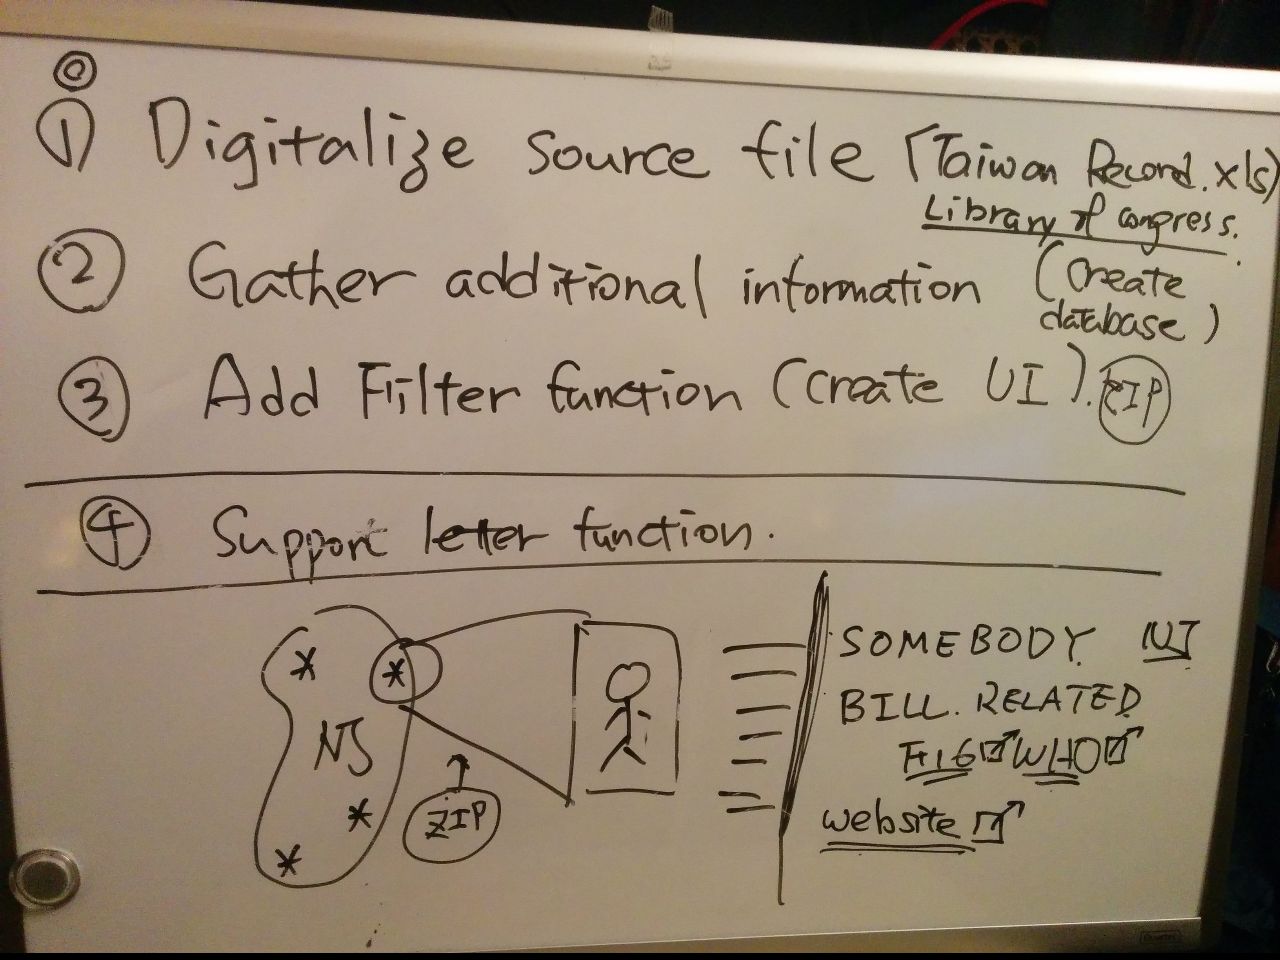 ◎
① Digitalize source file (Taiwan Record.xls)
Library of congress.
② Gather additional information (Create database)
③ Add Filter function (Create UI). ZIP
④ Support letter function.
NJ
ZIP
SOMEBODY NJ
BILL. RELATED
WHO
website